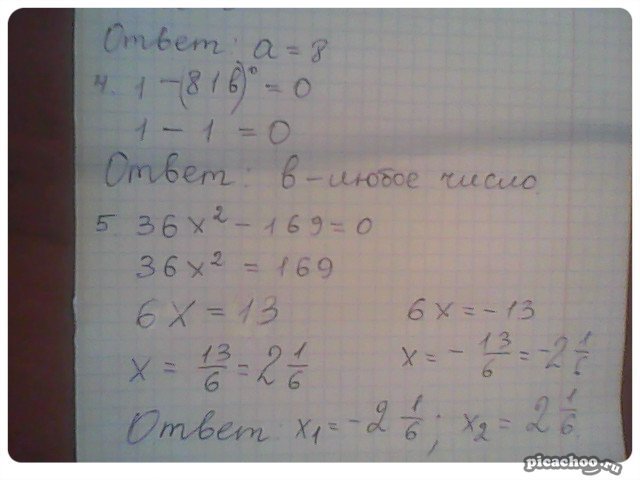 Ответ: a = 8
4. 1 - (81в)⁰ = 0
1 - 1 = 0
Ответ: в - любое число
5. 36x² - 169 = 0
36x² = 169
6x = 13    6x = -13
x = 13/6 = 2 1/6    x = - 13/6 = -2 1/6
Ответ: x₁ = -2 1/6; x₂ = 2 1/6.
picachoo.ru